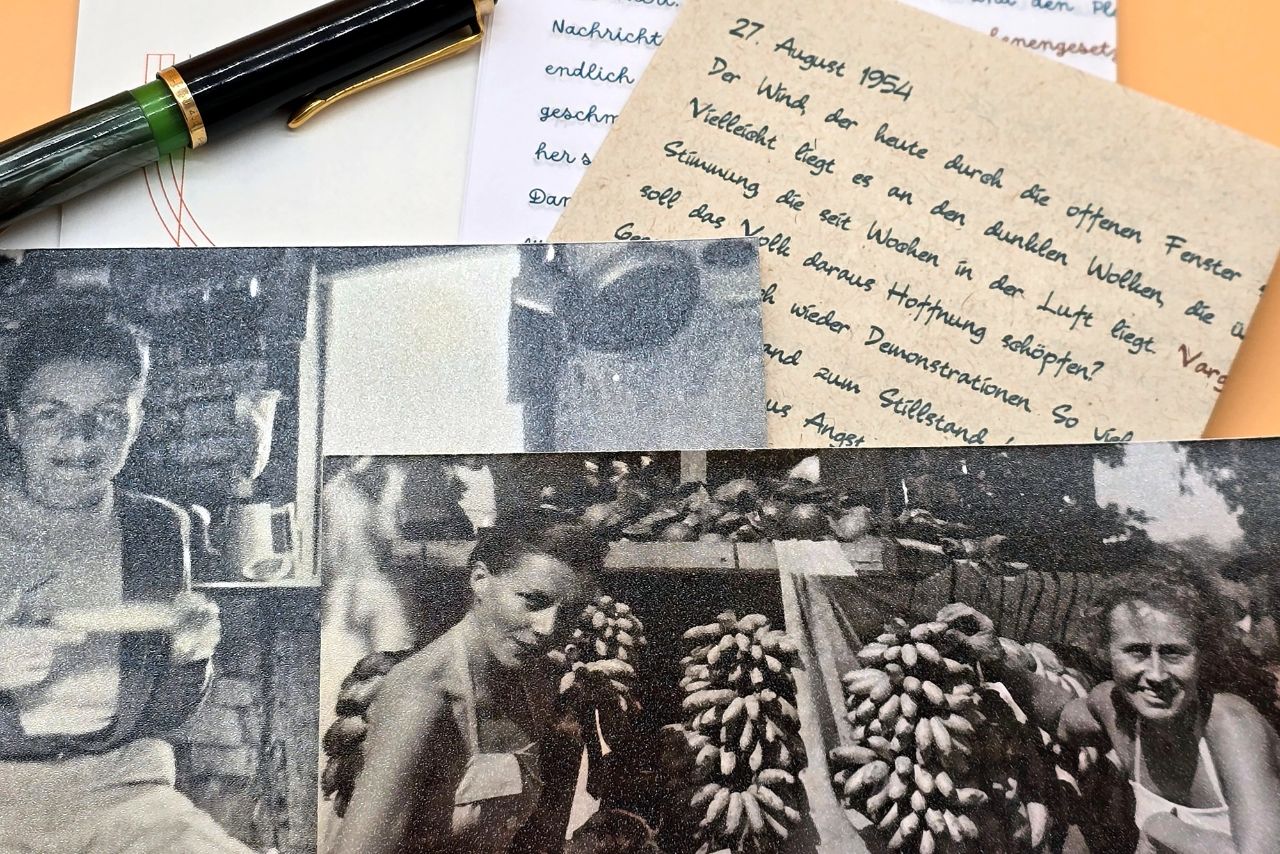 und den Pl
Nachricht
lenengesetz
endlich
geschm
her s
Dar
27. August 1954
Der Wind, der heute durch die offenen Fenster
Vielleicht liegt es an den dunklen Wolken, die ü
Stimmung die seit Wochen in der Luft liegt. Varg
soll das Volk daraus Hoffnung schöpfen?
Ge ch wieder Demonstrationen. So viel
and zum Stillstand
us Angst